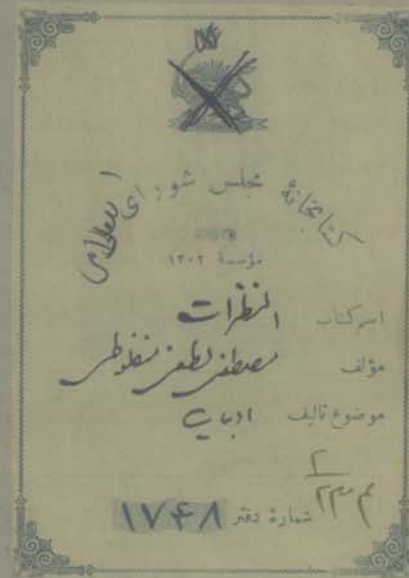 کتابخانهٔ مجلس شورای اسلامی
مؤسسهٔ ۱۳۰۲
اسم کتاب النظرات
مؤلف مصطفی لطفی منفلوطی
موضوع تألیف ادبیات
۲
شمارهٔ دفتر ۱۷۴۸